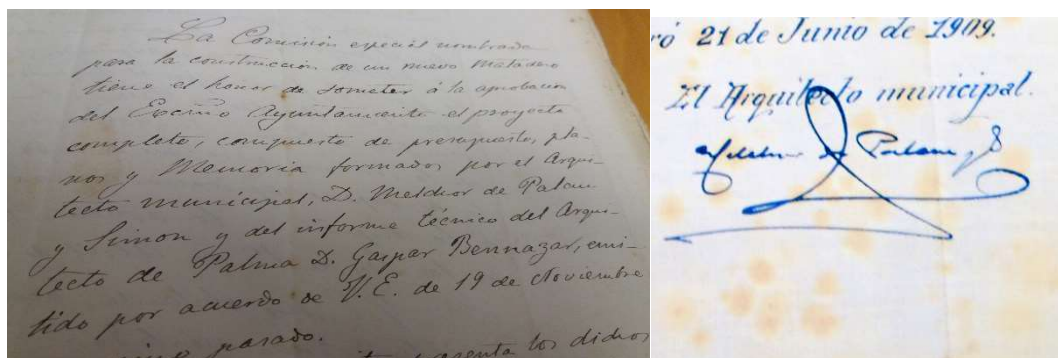 La Comisión especial nombrada
para la construcción de un nuevo Matadero
tiene el honor de someter á la aprobación
del Excmo Ayuntamiento el proyecto
completo, compuesto de presupuesto, pla-
nos y Memoria formados por el Arqui-
tecto municipal, D. Melchor de Palau
y Simon y del informe técnico del Arqui-
tecto de Palma D. Gaspar Bennazar, emi-
tido por acuerdo de V.E. de 19 de Noviembre
pasado.
los dichos
ró 21 de Junio de 1909.
El Arquitecto municipal.